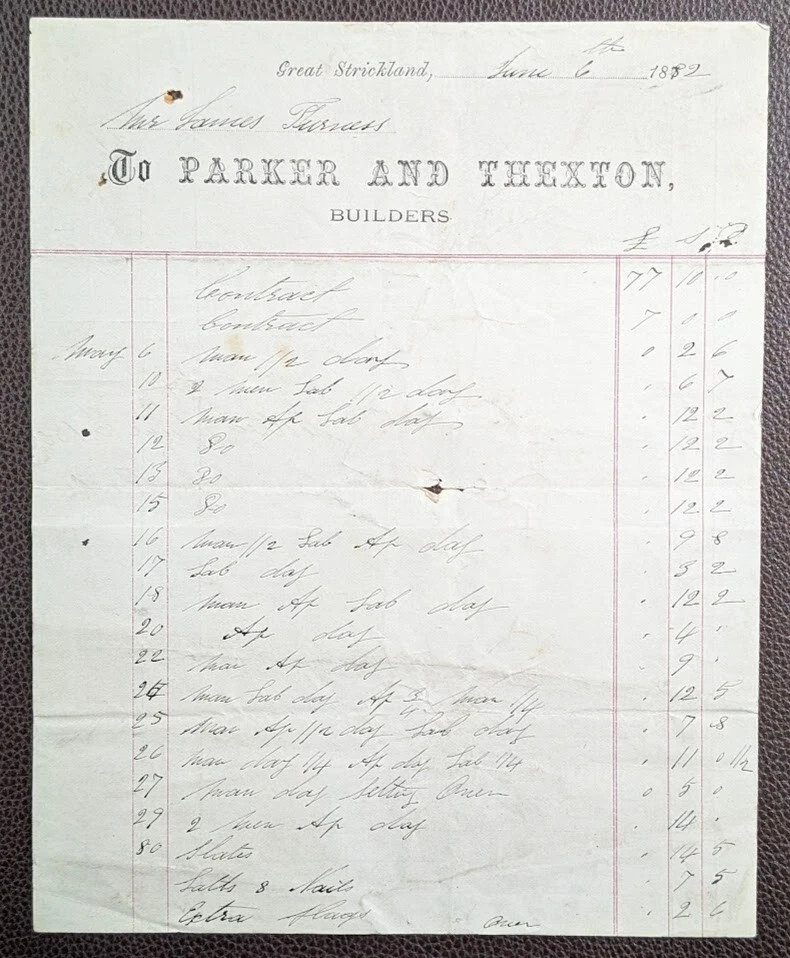 Great Strickland, June 6th 1882
Mr James Furness
To PARKER AND THEXTON,
BUILDERS
£ S D
Contract 77 10 0
Contract 7 0 0
May 6 man 1/2 day 0 2 6
10 2 men Lab 1/2 day . 6 7
11 man Ap Lab day . 12 2
12 Do . 12 2
13 Do . 12 2
15 Do . 12 2
16 man 1/2 Lab Ap day . 9 8
17 Lab day . 3 2
18 man Ap Lab day . 12 2
20 Ap day . 4 .
22 man Ap day . 9 .
24 man Lab day Ap 3/4 man 1/4 . 12 5
25 man Ap 1/2 day Lab day . 7 8
26 man day 1/4 Ap day Lab 1/4 . 11 0 1/2
27 man day setting Oven 0 5 0
29 2 men Ap day . 14 .
30 Slates . 14 5
Latts & Nails . 7 5
Extra flags . 2 6
over